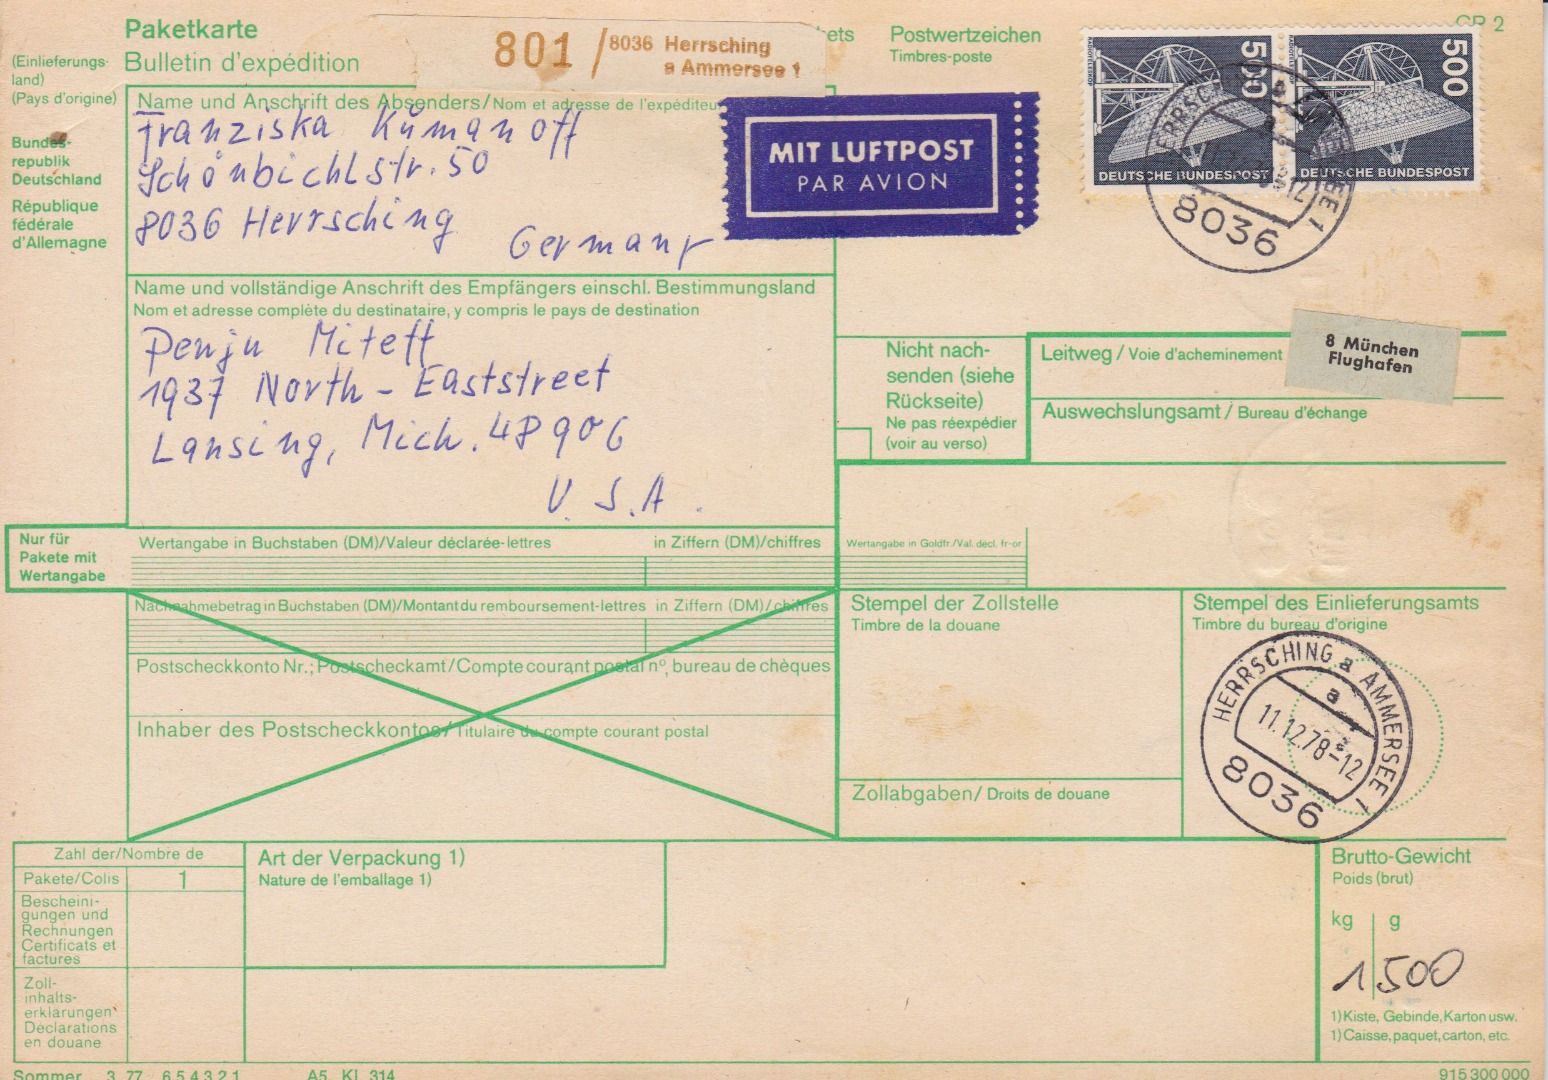 Paketkarte
Bulletin d'expédition
(Einlieferungs-
land)
(Pays d'origine)
Bundes-
republik
Deutschland
République
fédérale
d'Allemagne
801 / 8036 Herrsching
a Ammersee 1
Postwertzeichen
Timbres-poste
CP 2
Name und Anschrift des Absenders/Nom et adresse de l'expéditeur
Franziska Kümanoff
Schönbichlstr. 50
8036 Herrsching
Germany
MIT LUFTPOST
PAR AVION
500
RADIOTELESKOP
DEUTSCHE BUNDESPOST
500
DEUTSCHE BUNDESPOST
8036
Name und vollständige Anschrift des Empfängers einschl. Bestimmungsland
Nom et adresse complète du destinataire, y compris le pays de destination
Penju Miteff
1937 North-Eaststreet
Lansing, Mich. 48906
U.S.A.
Nicht nach-
senden (siehe
Rückseite)
Ne pas réexpédier
(voir au verso)
Leitweg / Voie d'acheminement
8 München
Flughafen
Auswechslungsamt / Bureau d'échange
Nur für
Pakete mit
Wertangabe
Wertangabe in Buchstaben (DM)/Valeur déclarée-lettres in Ziffern (DM)/chiffres
Wertangabe in Goldfr./Val. décl. fr-or
Nachnahmebetrag in Buchstaben (DM)/Montant du remboursement-lettres in Ziffern (DM)/chiffres
Postscheckkonto Nr.; Postscheckamt/Compte courant postal nº, bureau de chèques
Inhaber des Postscheckkontos/Titulaire du compte courant postal
Stempel der Zollstelle
Timbre de la douane
Zollabgaben/ Droits de douane
Stempel des Einlieferungsamts
Timbre du bureau d'origine
HERRSCHING a AMMERSEE 1
a
11.12.78-12
8036
Zahl der/Nombre de
Pakete/Colis 1
Bescheini-
gungen und
Rechnungen
Certificats et
factures
Zoll-
inhalts-
erklärungen
Déclarations
en douane
Art der Verpackung 1)
Nature de l'emballage 1)
Brutto-Gewicht
Poids (brut)
kg g
1 500
1) Kiste, Gebinde, Karton usw.
1) Caisse, paquet, carton, etc.
Sommer 3. 77 6 5 4 3 2 1 A5, Kl. 314
915 300 000